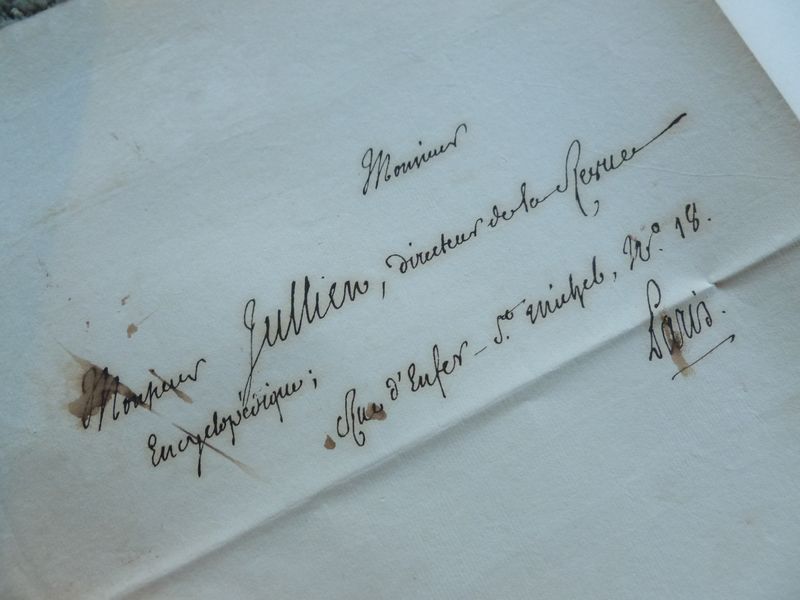 Monsieur
Monsieur Jullien, directeur de la Revue
Encyclopédique;
Rue d'Enfer – St. Michel, No. 18.
Paris.